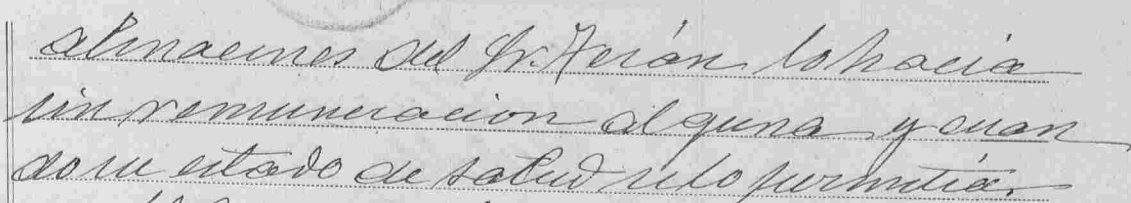 almacenes del Sr. Terán lo hacia
sin remuneracion alguna y cuan
do su estado de salud se lo permitia.